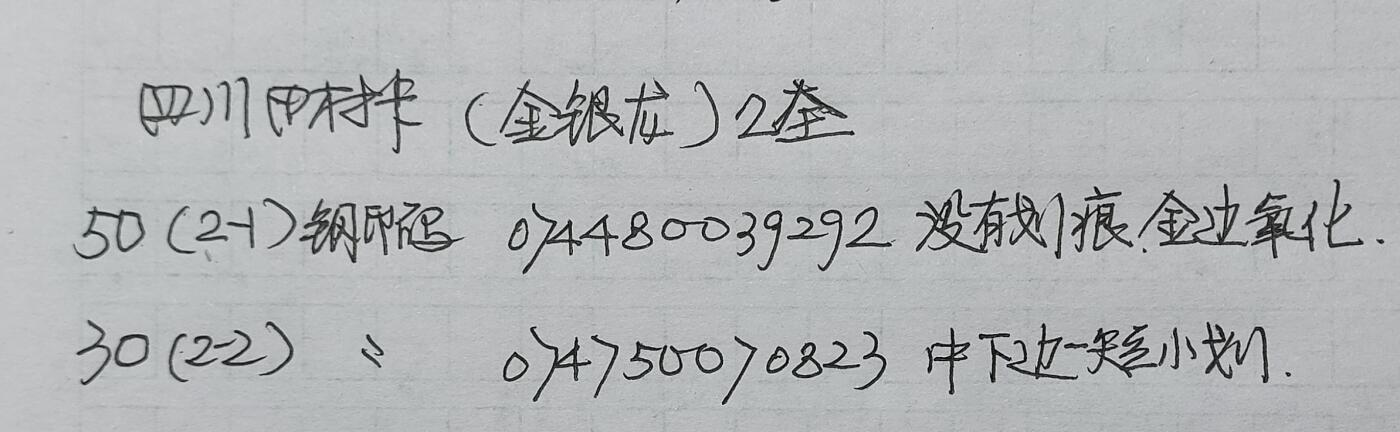 四川田村卡（金银龙）2全
50（2-1）钢印码 074480039292 没有划痕.金边氧化.
30（2-2） 〃 074750070823 中下边一短小划.